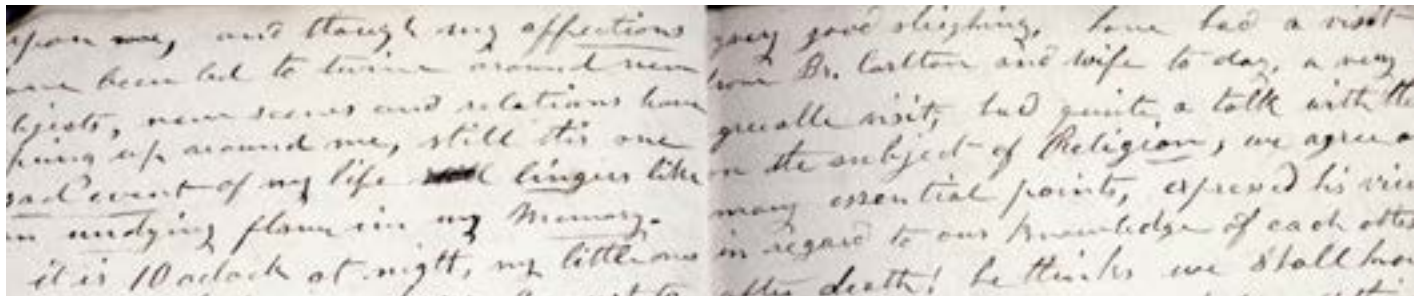 upon me, and though my affections
have been led to twine around new
bjects, new scenes and relations have
pring up around me, still this one
sad event of my life lingers like
an undying flame in my Memory.
it is 10 oclock at night, my little ones
very good sleighing, have had a visit
from Br. Carlton and wife to day, a very
greeable visit, had quite a talk with the
on the subject of Religion, we agree o
many essential points, expressed his view
in regard to our knowledge of each other
after death! he thinks we shall know